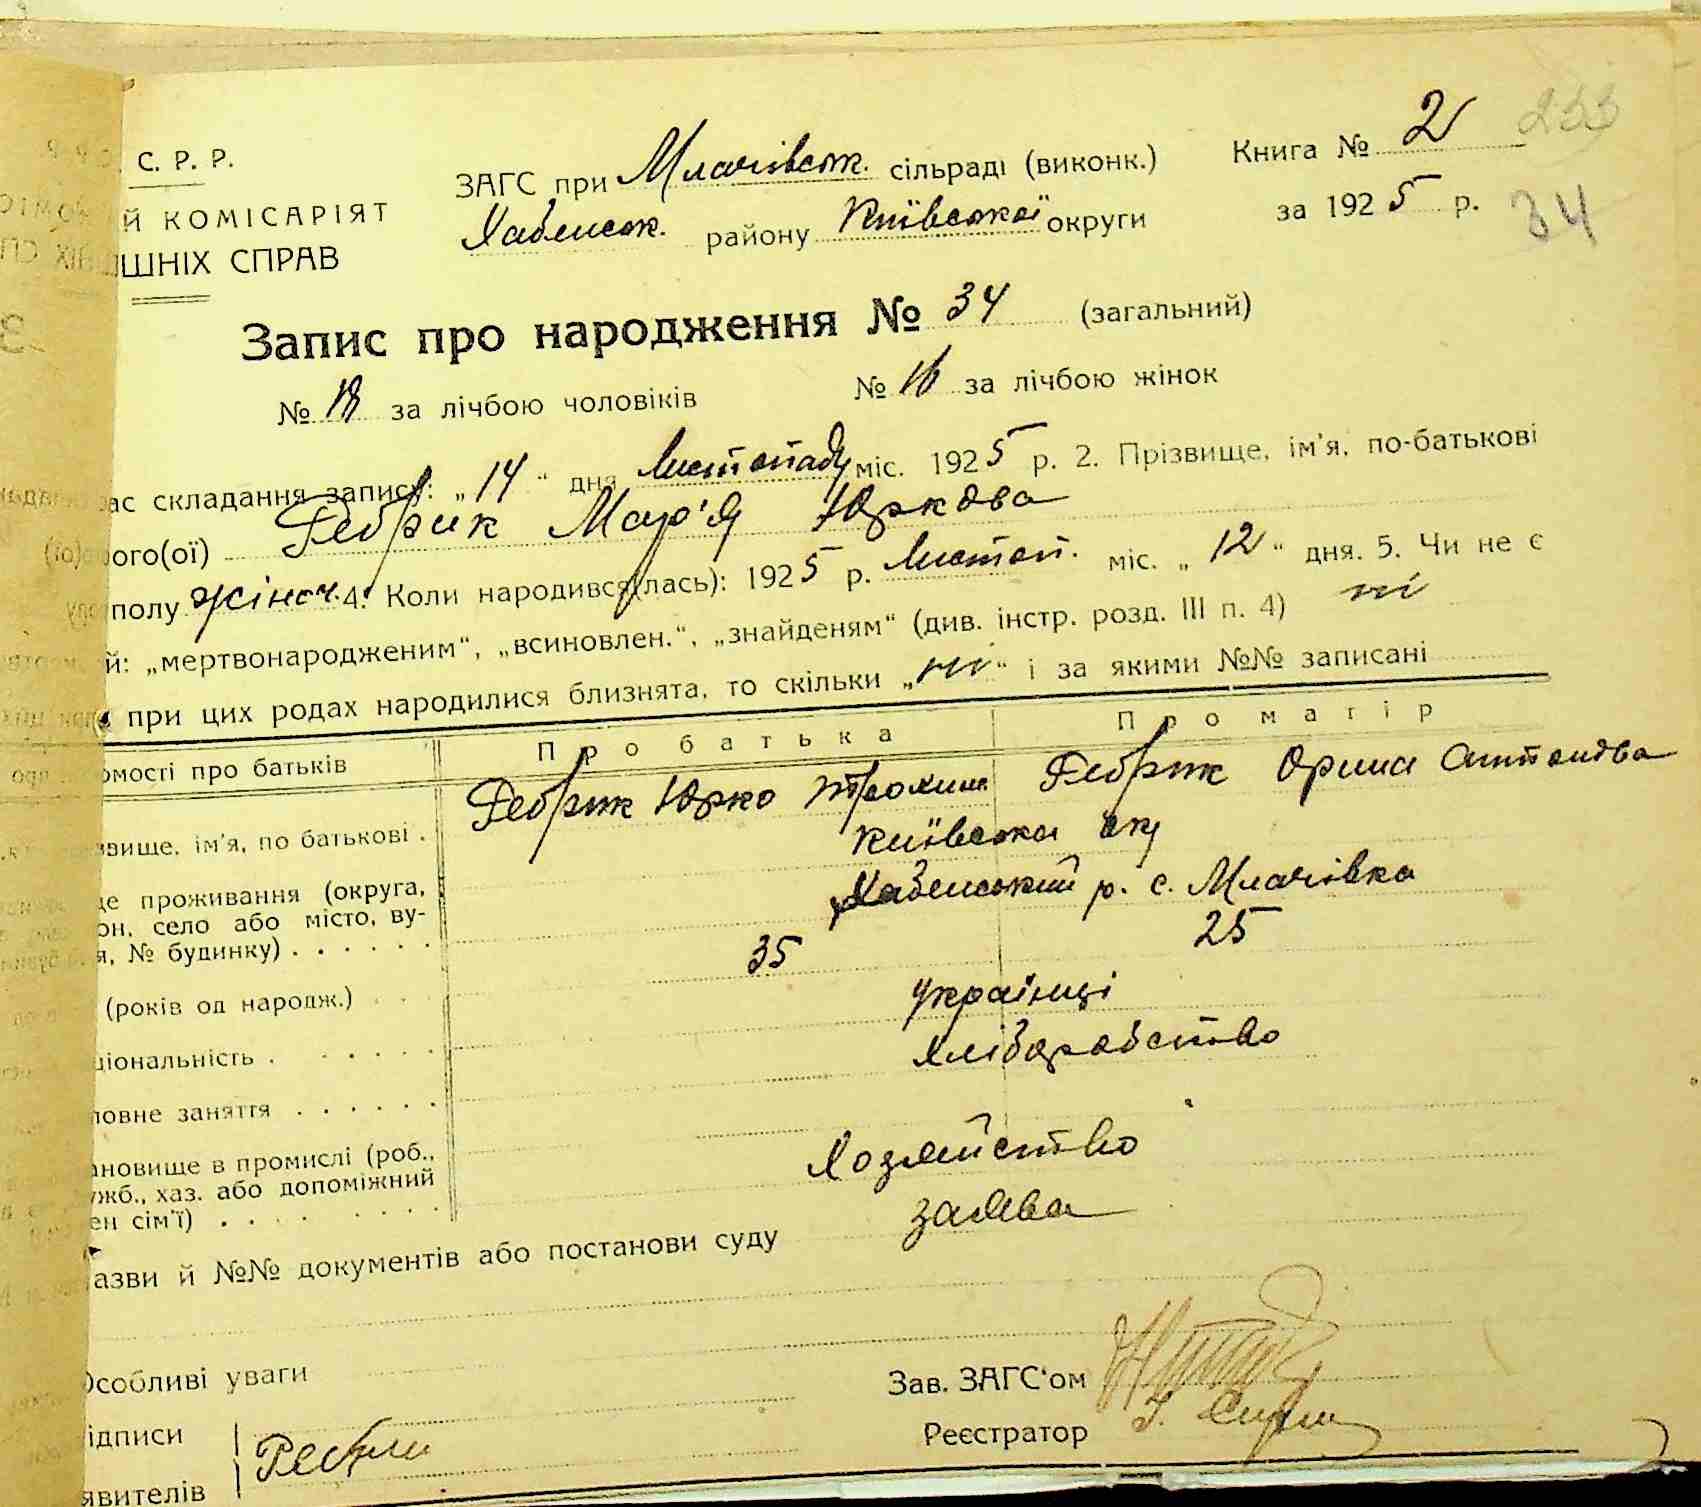 С. Р. Р.
Й КОМІСАРІЯТ
ШНІХ СПРАВ
ЗАГС при Млачівськ. сільраді (виконк.)
Хабенськ. району Київської округи
Книга № 2
233
за 1925 р.
34
Запис про народження № 34 (загальний)
№ 18 за лічбою чоловіків № 16 за лічбою жінок
ас складання запису: „14“ дня Листопаду міс. 1925 р. 2. Прізвище, ім'я, по-батькові
ого(ої) Ребрик Мар'я Юркова
полу жіноч. 4. Коли народився(лась): 1925 р. Листоп. міс. „12“ дня. 5. Чи не є
й: „мертвонародженим“, „всиновлен.“, „знайденям“ (див. інстр. розд. III п. 4) ні
при цих родах народилися близнята, то скільки „ні“ і за якими №№ записані
омості про батьків Про батька Про матір
звище, ім'я, по батькові . Ребрик Юрко Трохим. Ребрик Орина Антонова
Київська ок
це проживання (округа,
он, село або місто, ву-
я, № будинку) . . . . . . Хабенський р. с. Млачівка
(років од народж.) . . 35 25
ціональність . . . . . . Українці
ловне заняття . . . . . . Хліборобство
ановище в промислі (роб.,
ужб., хаз. або допоміжний
ен сім'ї) . . . . . . . . Хозяйство
азви й №№ документів або постанови суду заява
Особливі уваги
Зав. ЗАГС'ом
ідписи
Реєстратор
явителів